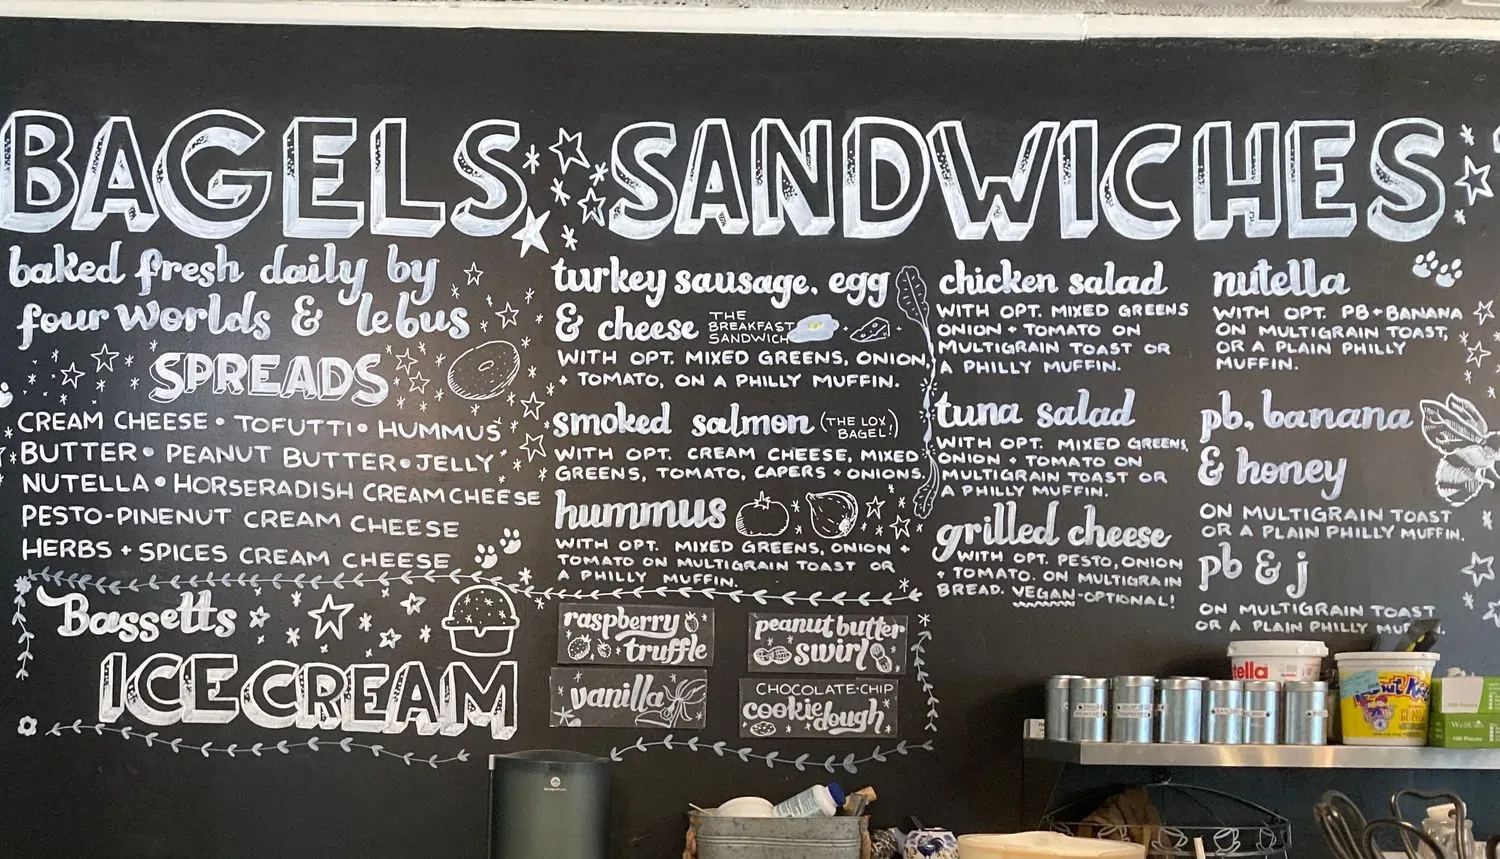 BAGELS
baked fresh daily by
four worlds & le bus
SPREADS
CREAM CHEESE • TOFUTTI • HUMMUS
BUTTER • PEANUT BUTTER • JELLY
NUTELLA • HORSERADISH CREAM CHEESE
PESTO-PINENUT CREAM CHEESE
HERBS + SPICES CREAM CHEESE
Bassetts
ICE CREAM
raspberry
truffle
peanut butter
swirl
vanilla
CHOCOLATE-CHIP
cookie dough
SANDWICHES
turkey sausage, egg
& cheese
THE
BREAKFAST
SANDWICH
WITH OPT. MIXED GREENS, ONION,
+ TOMATO, ON A PHILLY MUFFIN.
smoked salmon (THE LOX
BAGEL!)
WITH OPT. CREAM CHEESE, MIXED
GREENS, TOMATO, CAPERS + ONIONS.
hummus
WITH OPT. MIXED GREENS, ONION +
TOMATO ON MULTIGRAIN TOAST OR
A PHILLY MUFFIN.
chicken salad
WITH OPT. MIXED GREENS
ONION + TOMATO ON
MULTIGRAIN TOAST OR
A PHILLY MUFFIN.
tuna salad
WITH OPT. MIXED GREENS,
ONION + TOMATO ON
MULTIGRAIN TOAST OR
A PHILLY MUFFIN.
grilled cheese
WITH OPT. PESTO, ONION
+ TOMATO. ON MULTIGRAIN
BREAD. VEGAN-OPTIONAL!
nutella
WITH OPT. PB + BANANA
ON MULTIGRAIN TOAST,
OR A PLAIN PHILLY
MUFFIN.
pb, banana
& honey
ON MULTIGRAIN TOAST
OR A PLAIN PHILLY MUFFIN.
pb & j
ON MULTIGRAIN TOAST
OR A PLAIN PHILLY
tella